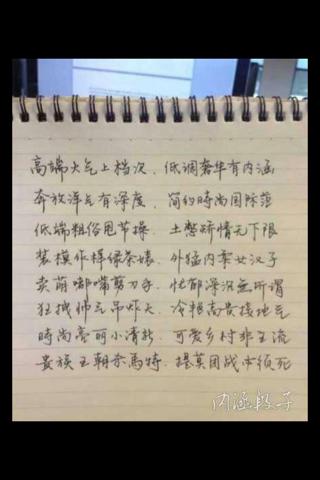 高端大气上档次、低调奢华有内涵
奔放洋气有深度、简约時尚国际范
低端粗俗甩节操、土憋矫情无下限
装模作样绿茶婊、外猛内柔女汉子
卖萌嘟嘴剪刀手、忧郁深沉無所谓
狂拽帅气吊炸天、冷艳高贵接地气
時尚亮丽小清新、可爱乡村非主流
贵族王朝杀馬特、提莫团战必须死
内涵段子